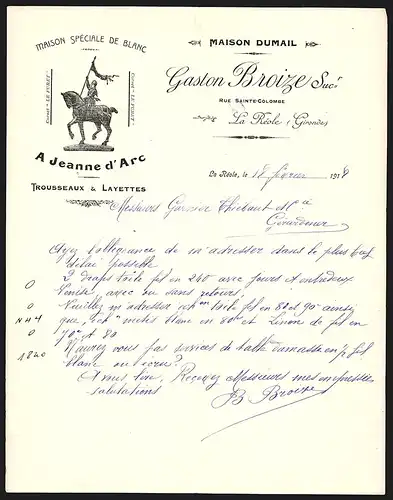 MAISON SPÉCIALE DE BLANC
MAISON DUMAIL
Gaston Broize Sucr
RUE SAINTE-COLOMBE
La Réole (Gironde)
Corset "LE FURET"
Corset "LE FURET"
A Jeanne d'Arc
TROUSSEAUX & LAYETTES
La Réole, le 18 février 191
Messieurs Garnier Thiebaut & Cie
Gérardmer
Ayez l'obligeance de m'adresser dans le plus bref
délai possible
2 draps toile fil en 240 avec jours et entredeux
Venise, avec ou sans retours
Veuillez m'adresser éch toile fil en 80 et 90 ainsi
que éch métis blanc en 80 et Linon de fil en
70 et 80
N'auriez vous pas services de table damassé en 1/2 fil
blanc ou écru?
A vous lire, Recevez Messieurs mes empressées
salutations
B Broize
0
0
NH1
0
1820